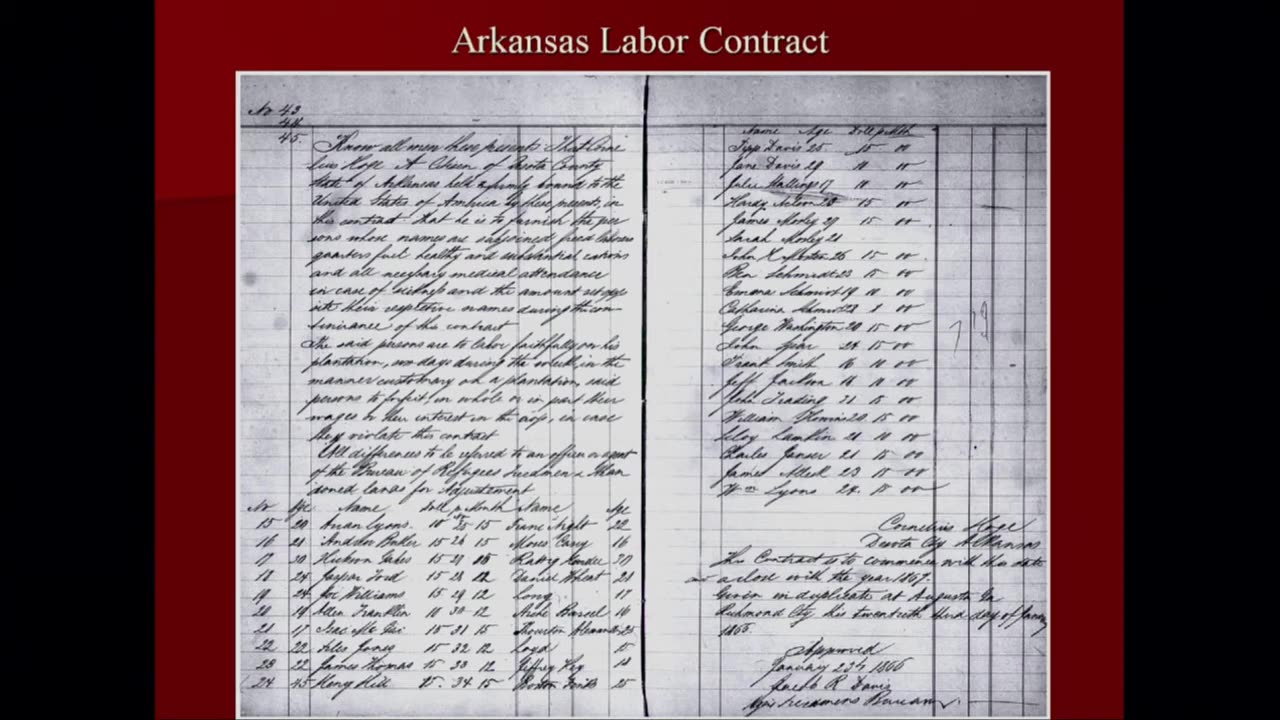 Arkansas Labor Contract
No 43
44
45
Know all men these presents That Corne
lius Hoge A Citizen of Desota County
State of Arkansas held & firmly bound to the
United States of America by these presents, in
this contract that he is to furnish the per
sons whose names are subjoined free laborers
quarters fuel healthy and substantial rations
and all necessary medical attendance
in case of sickness and the amount set opp
site their respective names during the con
tinuance of this contract
The said persons are to labor faithfully on his
plantation, six days during the week in the
manner customary on a plantation, said
persons to forfeit in whole or in part their
wages or their interest in the crop, in case
they violate this contract
All differences to be referred to an officer or agent
of the Bureau of Refugees Freedmen & Aban
doned lands for Adjustment
No Age Name Doll p Month Name Age
15 20 Lyons 15 22
16 21 Butler 15 26 15 Moses 16
17 30 15 27 30
18 24 Jasper Ford 15 28 12 Daniel Wheat 21
19 24 Joe Williams 15 29 12 Long 17
20 19 Allen Franklin 10 30 12 16
21 17 15 31 15 25
22 22 Jones 15 32 12 Loyd 15
23 22 James Thomas 15 33 12 Jeffrey 18
24 45 Hill 15 34 15 25
Name Age Doll p Mth
Davis 25 15 00
Jane Davis 29 10 00
Julia Stallings 17 10 00
15 00
James Mosley 27 15 00
Sarah Mosley 21
John X Morton 26 15 00
Ben Schmidt 23 15 00
Emma Schmidt 19 10 00
Catharina 8 00
George Washington 20 15 00
John Spear 24 15 00
Frank Smith 16 10 00
Jeff Jackson 16 10 00
31 15 00
William 20 15 00
Lamkin 21 10 00
Charles 21 15 00
James 23 15 00
Wm Lyons 24 15 00
Cornelius Hoge
Desota Cty Arkansas
This Contract is to commence with this date
and close with the year 1867.
Given in duplicate at Augusta Ga
Richmond Cty this twentieth third day of
1866.
Approved
January 23d 1866
Jacob R Davis
Freedmens Bureau